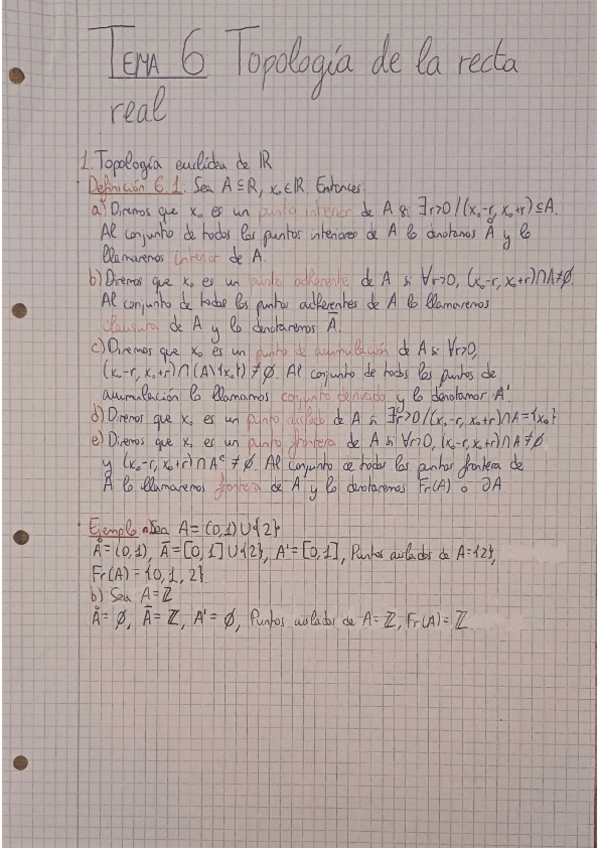 TEMA 6 Topología de la recta
real
1. Topología euclídea de ℝ
· Definición 6.1. Sea A⊆ℝ, x₀∈ℝ. Entonces:
a) Diremos que x₀ es un punto interior de A si ∃r>0/(x₀-r, x₀+r)⊆A.
Al conjunto de todos los puntos interiores de A lo denotamos Å y lo
llamaremos interior de A.
b) Diremos que x₀ es un punto adherente de A si ∀r>0, (x₀-r, x₀+r)∩A≠∅.
Al conjunto de todos los puntos adherentes de A lo llamaremos
clausura de A y lo denotaremos Ā.
c) Diremos que x₀ es un punto de acumulación de A si ∀r>0,
(x₀-r, x₀+r)∩(A\{x₀})≠∅. Al conjunto de todos los puntos de
acumulación lo llamamos conjunto derivado y lo denotamos A'.
d) Diremos que x₀ es un punto aislado de A si ∃r>0/(x₀-r, x₀+r)∩A={x₀}
e) Diremos que x₀ es un punto frontera de A si ∀r>0, (x₀-r, x₀+r)∩A≠∅
y (x₀-r, x₀+r)∩Aᶜ≠∅. Al conjunto de todos los puntos frontera de
A lo llamaremos frontera de A y lo denotaremos Fr(A) o ∂A
· Ejemplo a) Sea A=(0,1)∪{2}
Å=(0,1), Ā=[0,1]∪{2}, A'=[0,1], Puntos aislados de A={2},
Fr(A)={0,1,2}
b) Sea A=ℤ
Å=∅, Ā=ℤ, A'=∅, Puntos aislados de A=ℤ, Fr(A)=ℤ